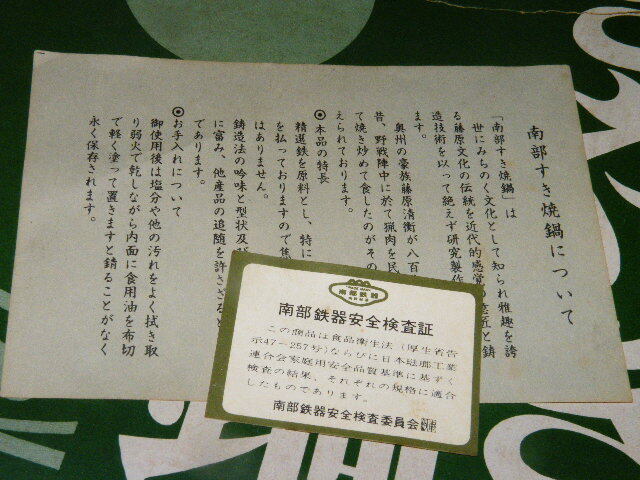 南部すき焼鍋について
「南部すき焼鍋」は
世にみちのく文化として知られ雅趣を誇
る藤原文化の伝統を近代的感覚の意匠と鋳
造技術を以って絶えず研究製作
ます。
奥州の豪族藤原清衡が八百
昔、野戦陣中に於て猟肉を民
て焼き炒めて食したのがその
えられております。
◉本品の特長
精選鉄を原料とし、特に
を払っておりますので焦
はありません。
鋳造法の吟味と型状及び
に富み、他産品の追随を許さざると
であります。
◉お手入れについて
御使用後は塩分や他の汚れをよく拭き取
り弱火で乾しながら内面に食用油を布切
で軽く塗って置きますと錆ることがなく
永く保存されます。
南部鉄器
南部鉄器安全検査証
この商品は食品衛生法(厚生省告
示47-257号)ならびに日本琺瑯工業
連合会家庭用安全品質基準に基ずく
検査の結果、それぞれの規格に適合
したものであります。
南部鉄器安全検査委員会